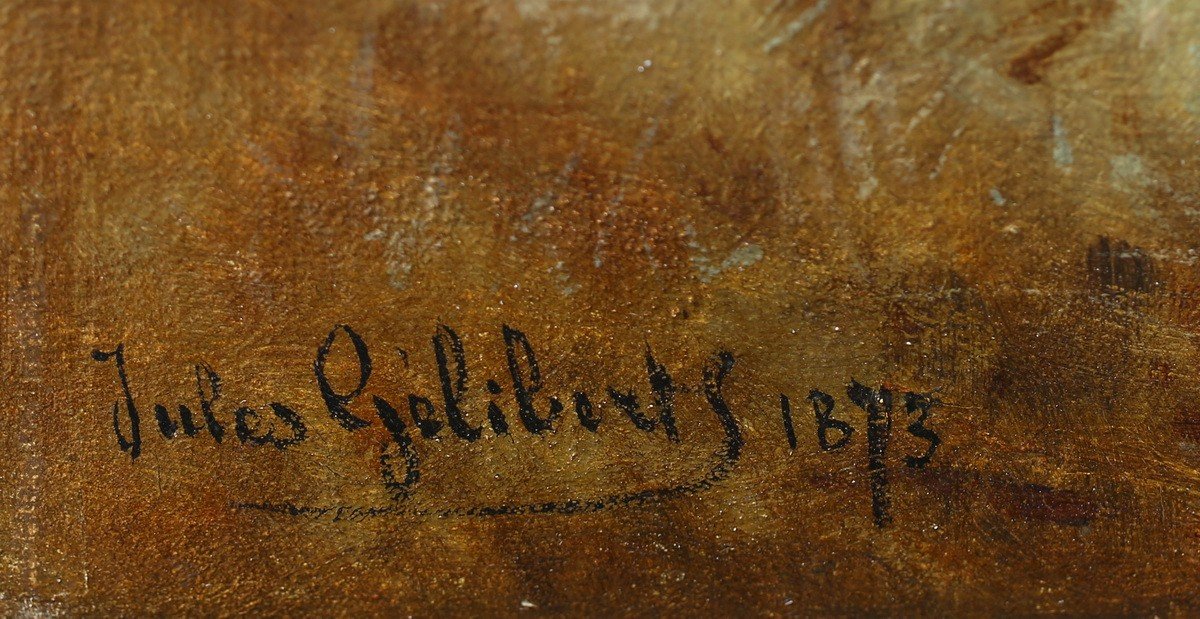 Jules Gélibert 1873